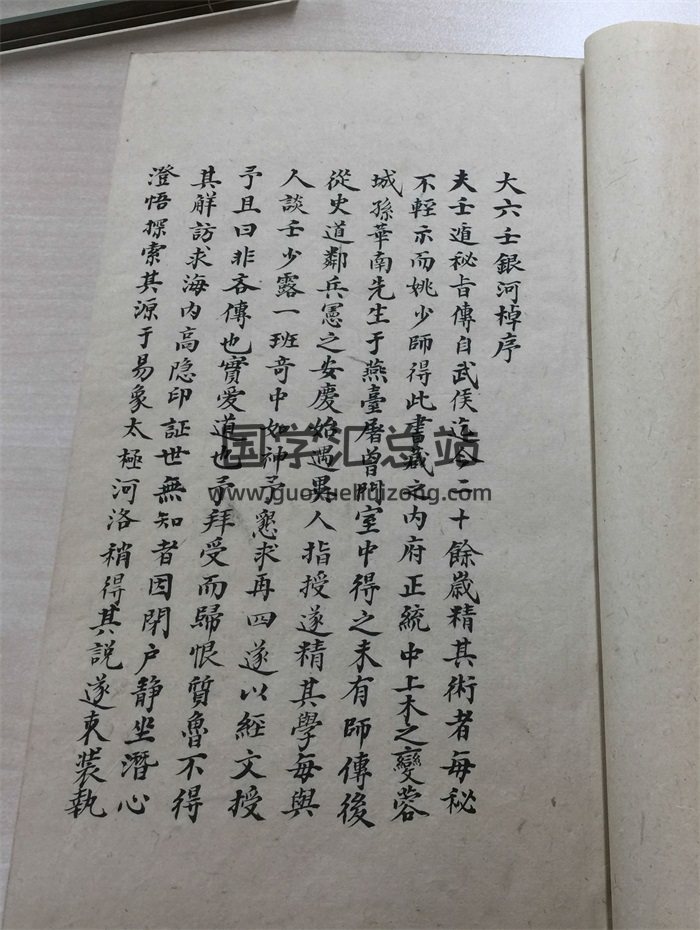 大六壬銀河棹序
夫壬遁秘旨傳自武侯迄今二十餘歲精其術者每秘
不輕示而姚少師得此書藏之内府正統中土木之變蓉
城孫華南先生于燕臺屠曾門室中得之未有師傳後
從史道鄰兵憲之安慶始遇異人指授遂精其學每與
人談壬少露一班奇中如神予懇求再四遂以經文授
予且曰非吝傳也實愛道也予拜受而歸恨質魯不得
其解訪求海内高隐印証世無知者因閉户静坐潛心
澄悟探索其源于易象太極河洛稍得其説遂束裝執
国学汇总站
www.guoxuehuizong.com